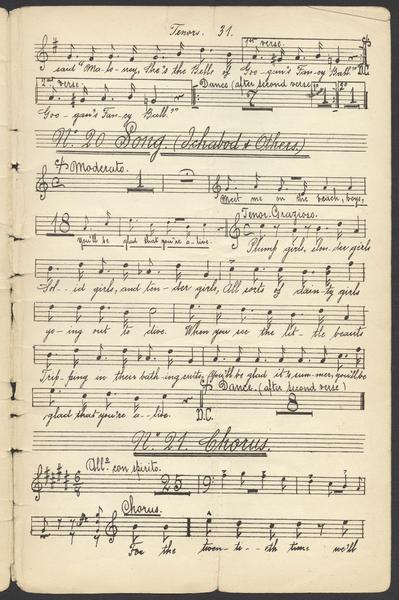 Tenors. 31.
1st verse.
said "Ma-lo-ney, She's the Belle of Goo-gan's Fan-cy Ball." D.C.
2nd verse. Dance (after second verse) 7 1
Goo-gan's Fan-cy Ball."
No. 20 Song. (Ichabod & Others.)
Moderato.
1
Meet me on the beach, boys,
18 Tenor. Grazioso.
You'll be glad that you're a-live. Plump girls, slen-der girls
Sol-id girls, and ten-der girls, All sorts of dain-ty girls
go-ing out to dive. When you see the lit-tle beauts
Trip-ping in their bath-ing suits, You'll be glad it's sum-mer, you'll be
Dance. (after second verse)
8
glad that you're a--live. D.C.
No. 21. Chorus.
Allo. con spirito.
25
Chorus.
For the twen-ti-eth time we'll